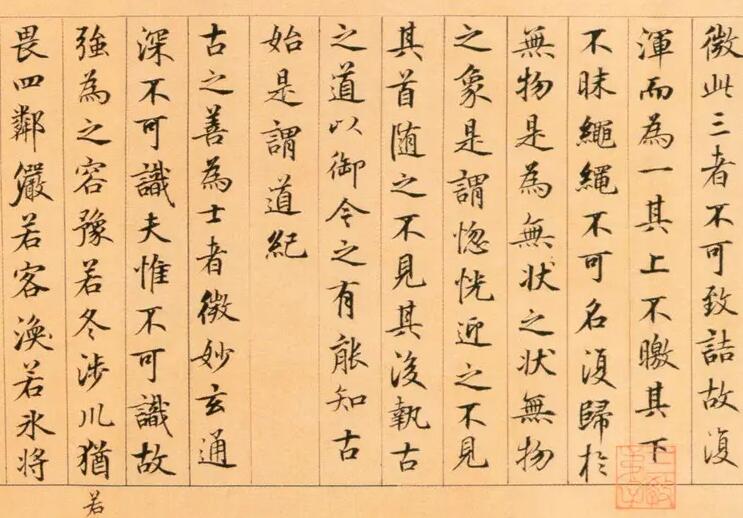 微此三者不可致詰故復
渾而為一其上不曒其下
不昧繩繩不可名復歸於
無物是為無状之状無物
之象是謂惚恍迎之不見
其首随之不見其後執古
之道以御今之有能知古
始是謂道紀
古之善為士者微妙玄通
深不可識夫惟不可識故
強為之容豫若冬涉川猶
畏四鄰嚴若客渙若氷將
若